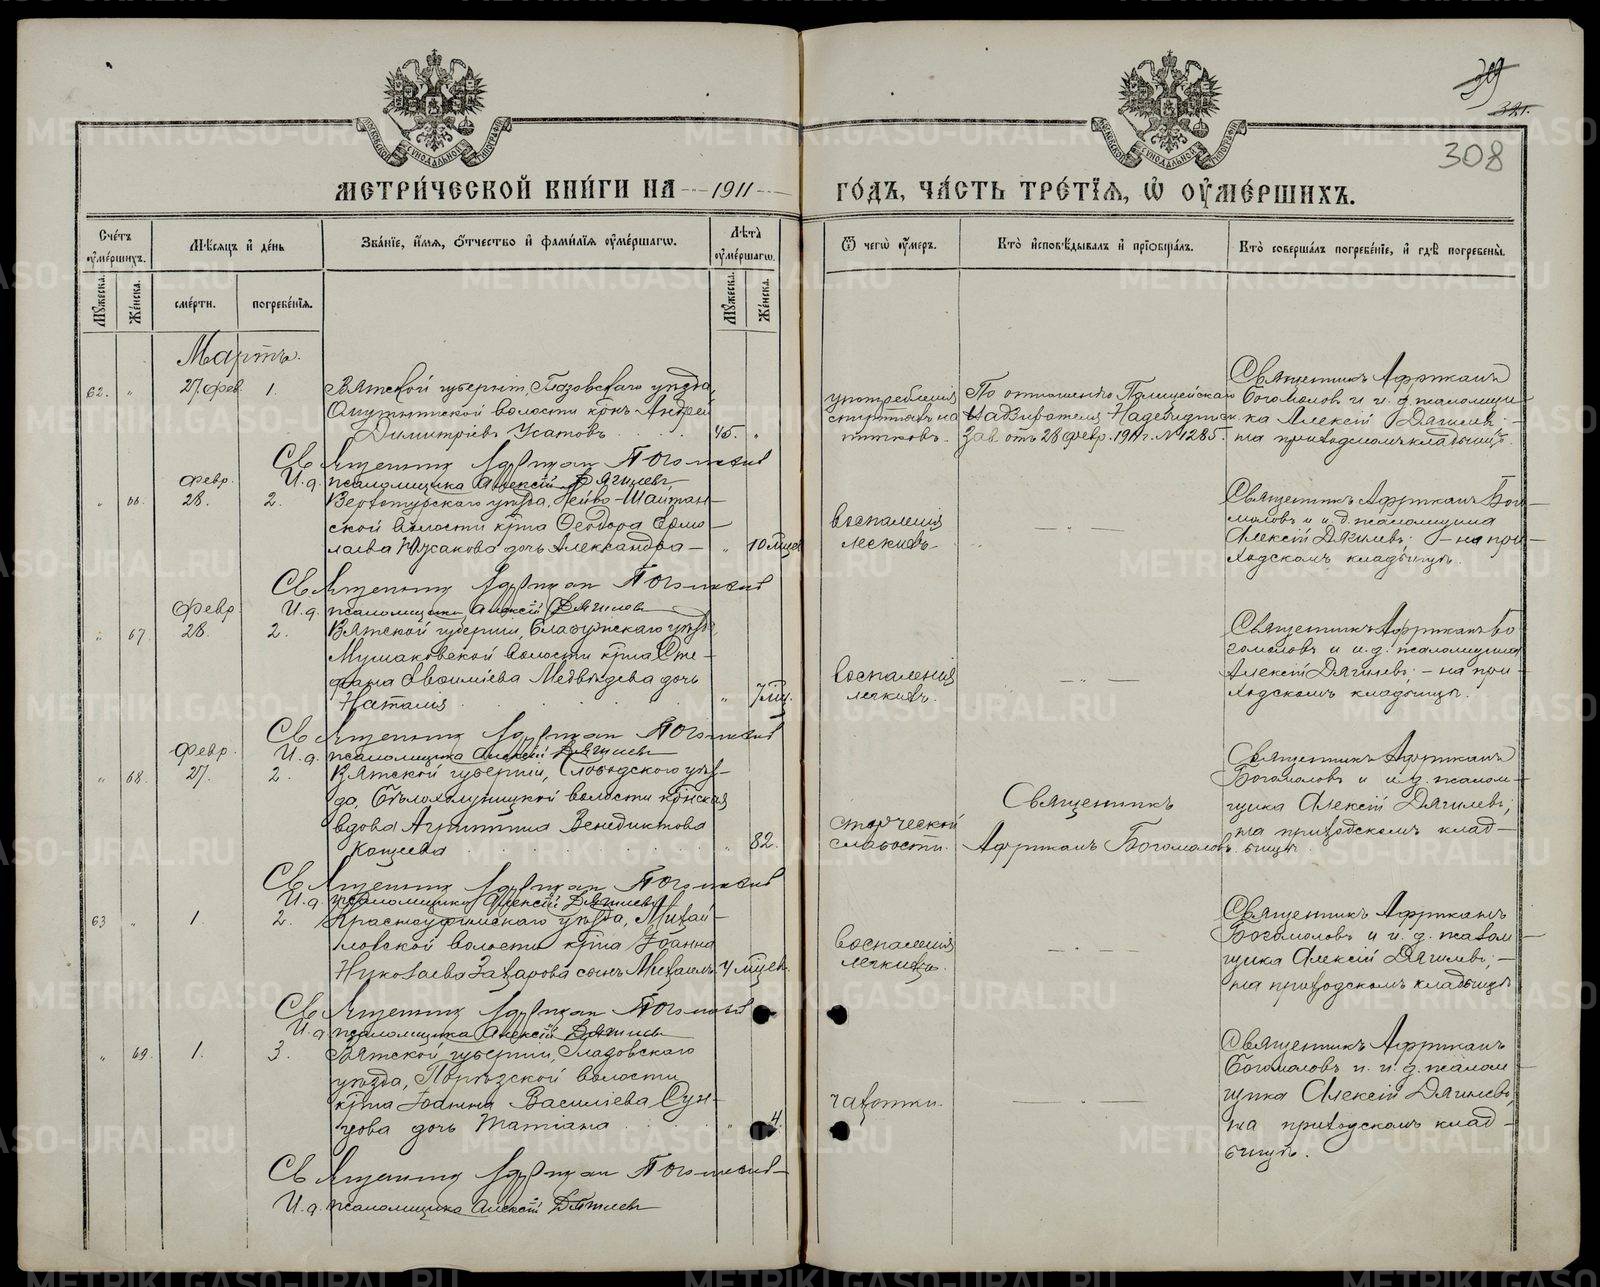 МЕТРИ́ЧЕСКОЙ КНИ́ГИ НА 1911
ГО́ДЪ, ЧА́СТЬ ТРЕ́ТЇѦ, Ѡ ОУ҆МЕ́РШИХЪ.
308
Сче́тъ оу҆ме́ршихъ.
Мꙋ́жеска.
Же́нска.
Мѣ́сѧцъ и҆ де́нь
сме́рти.
погребе́нїѧ.
Зва́нїе, и҆́мѧ, ѻ҆́тчество и҆ фами́лїѧ оу҆ме́ршагѡ.
Лѣ́та̀ оу҆ме́ршагѡ.
Мꙋ́жеска.
Же́нска.
Ѿ чегѡ̀ оу҆́меръ.
Кто̀ и҆сповѣ́дывалъ и҆ прїѡбща́лъ.
Кто̀ соверша́лъ погребе́нїе, и҆ гдѣ̀ погребены̀.
Мартъ.
62. " 27 фев. 1.
Вятской губерніи, Глазовскаго уѣзда,
волости крнъ Андрей
Димитріевъ Усатовъ 45. "
употребленія
спиртныхъ на
питковъ.
По отношенію Полицейскаго
Надзирателя Надеждинск
Зав. отъ 28 февр. 1911 г. № 1285.
Священникъ Африканъ
Богомоловъ и и. д. псаломщи
ка Алексій Дягилевъ;
на приходскомъ кладбищѣ.
Священникъ Африкан Богомолов
И. д. псаломщика Алексій Дягилевъ
" 66. Февр. 28. 2.
Верхотурскаго уѣзда, Нейво-Шайтан-
ской волости кр-на Ѳеодора Ермо-
лаева Южакова дочь Александра - " 10 мцев
воспаленія
легкихъ
Священникъ Африканъ Бого-
моловъ и и. д. псаломщика
Алексій Дягилевъ - на при-
ходскомъ кладбищѣ.
Священникъ Африкан Богомолов
И. д. псаломщика Алексій Дягилев
" 67. Февр. 28. 2.
Вятской губерніи, Елабужскаго уѣзда,
Мушаковской волости кр-на Сте-
фана Евѳиміева Медвѣдева дочь
Наталія " 7 мц.
воспаленія
легкихъ.
Священникъ Африканъ Бо
гомоловъ и и. д. псаломщика
Алексій Дягилевъ; - на при-
ходскомъ кладбищѣ.
Священникъ Африкан Богомолов
И. д. псаломщика Алексій Дягилев
" 68. Февр. 27. 2.
Вятской губерніи, Слободского уѣз-
да, Бѣлохолуницкой волости кр-нская
вдова Агриппина Венедиктова
Кощеева " 82.
старческой
слабости.
Священникъ
Африканъ Богомоловъ.
Священникъ Африканъ
Богомоловъ и и. д. псалом-
щика Алексій Дягилевъ;
на приходскомъ клад-
бищѣ.
Священникъ Африкан Богомолов
И. д. псаломщика Алексій Дягилев
63 " 1. 2.
Красноуфимскаго уѣзда, Михай-
ловской волости кр-на Іоанна
Николаева Захарова сынъ Михаилъ 4 мцев.
воспаленія
легкихъ.
Священникъ Африканъ
Богомоловъ и и. д. псалом-
щика Алексій Дягилевъ; -
на приходскомъ кладбищѣ
Священникъ Африкан Богомолов
И. д. псаломщика Алексій Дягилев
" 69. 1. 3.
Вятской губерніи, Глазовскаго
уѣзда, Порѣзской волости
кр-на Іоанна Василіева Сун-
цова дочь Татіана " 4.
чахотки.
Священникъ Африканъ
Богомоловъ и и. д. псалом-
щика Алексій Дягилевъ;
на приходскомъ клад-
бищѣ.
Священникъ Африкан Богомолов
И. д. псаломщика Алексій Дягилев
METRIKI.GASO-URAL.RU